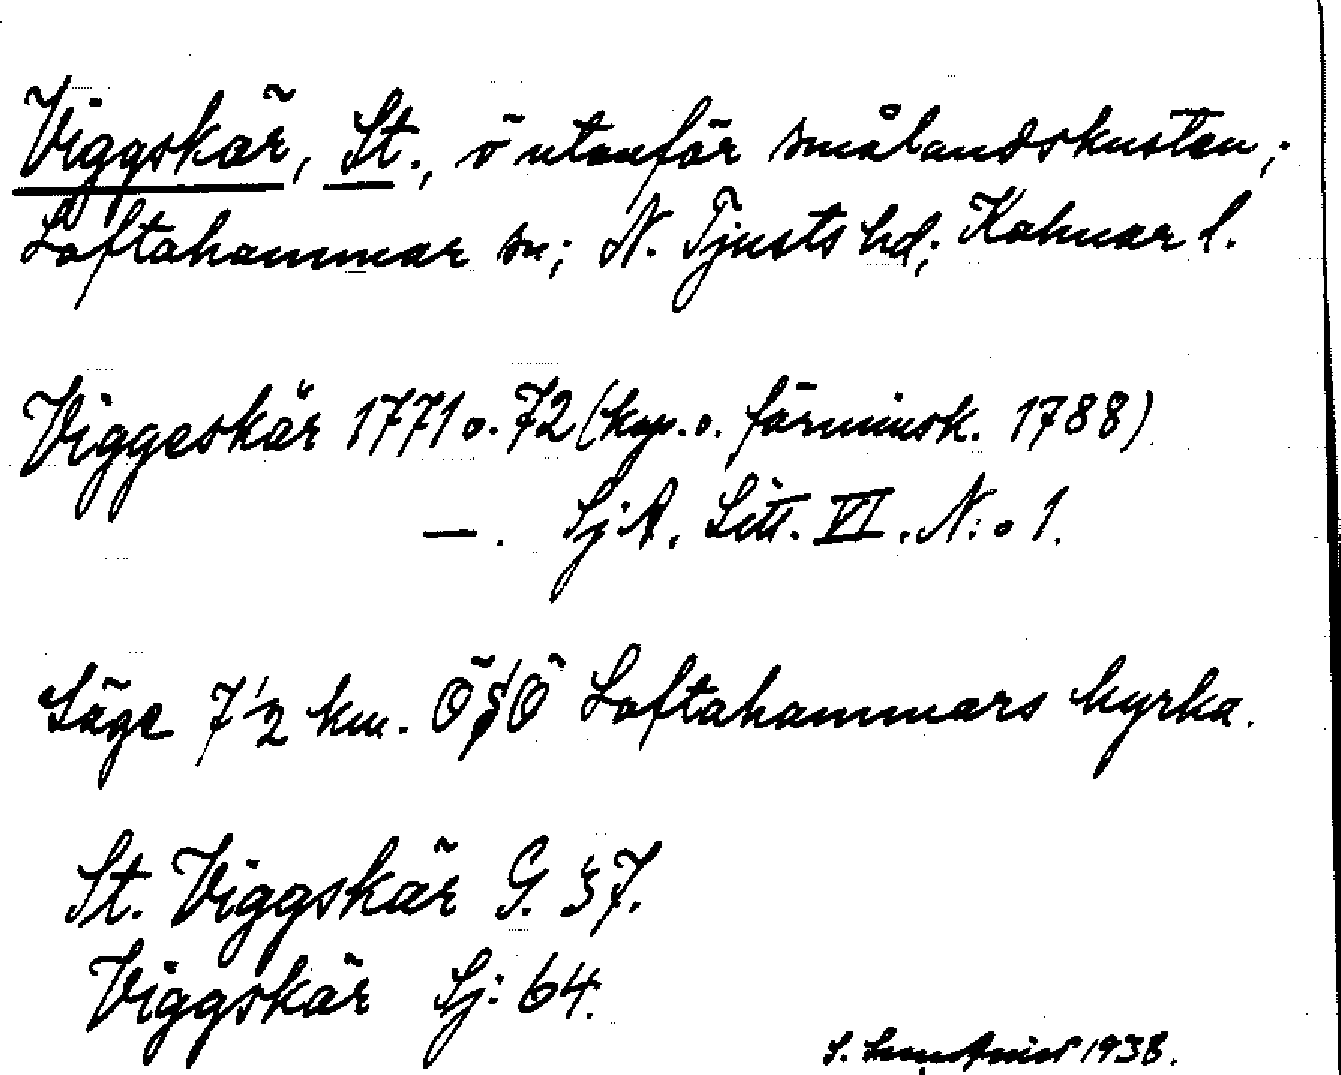 Viggskär, St., ö utanför smålandskusten;
Loftahammar sn; N. Tjusts hd; Kalmar l.
Viggeskär 1771 o. 72 (kop. o. förminsk. 1788)
—. Sj:A. Litt. VI. N:o 1.
Läge 7 1/2 km. ÖSÖ Loftahammars kyrka.
St. Viggskär G. 37.
Viggskär Sj: 64.
S. 1938.